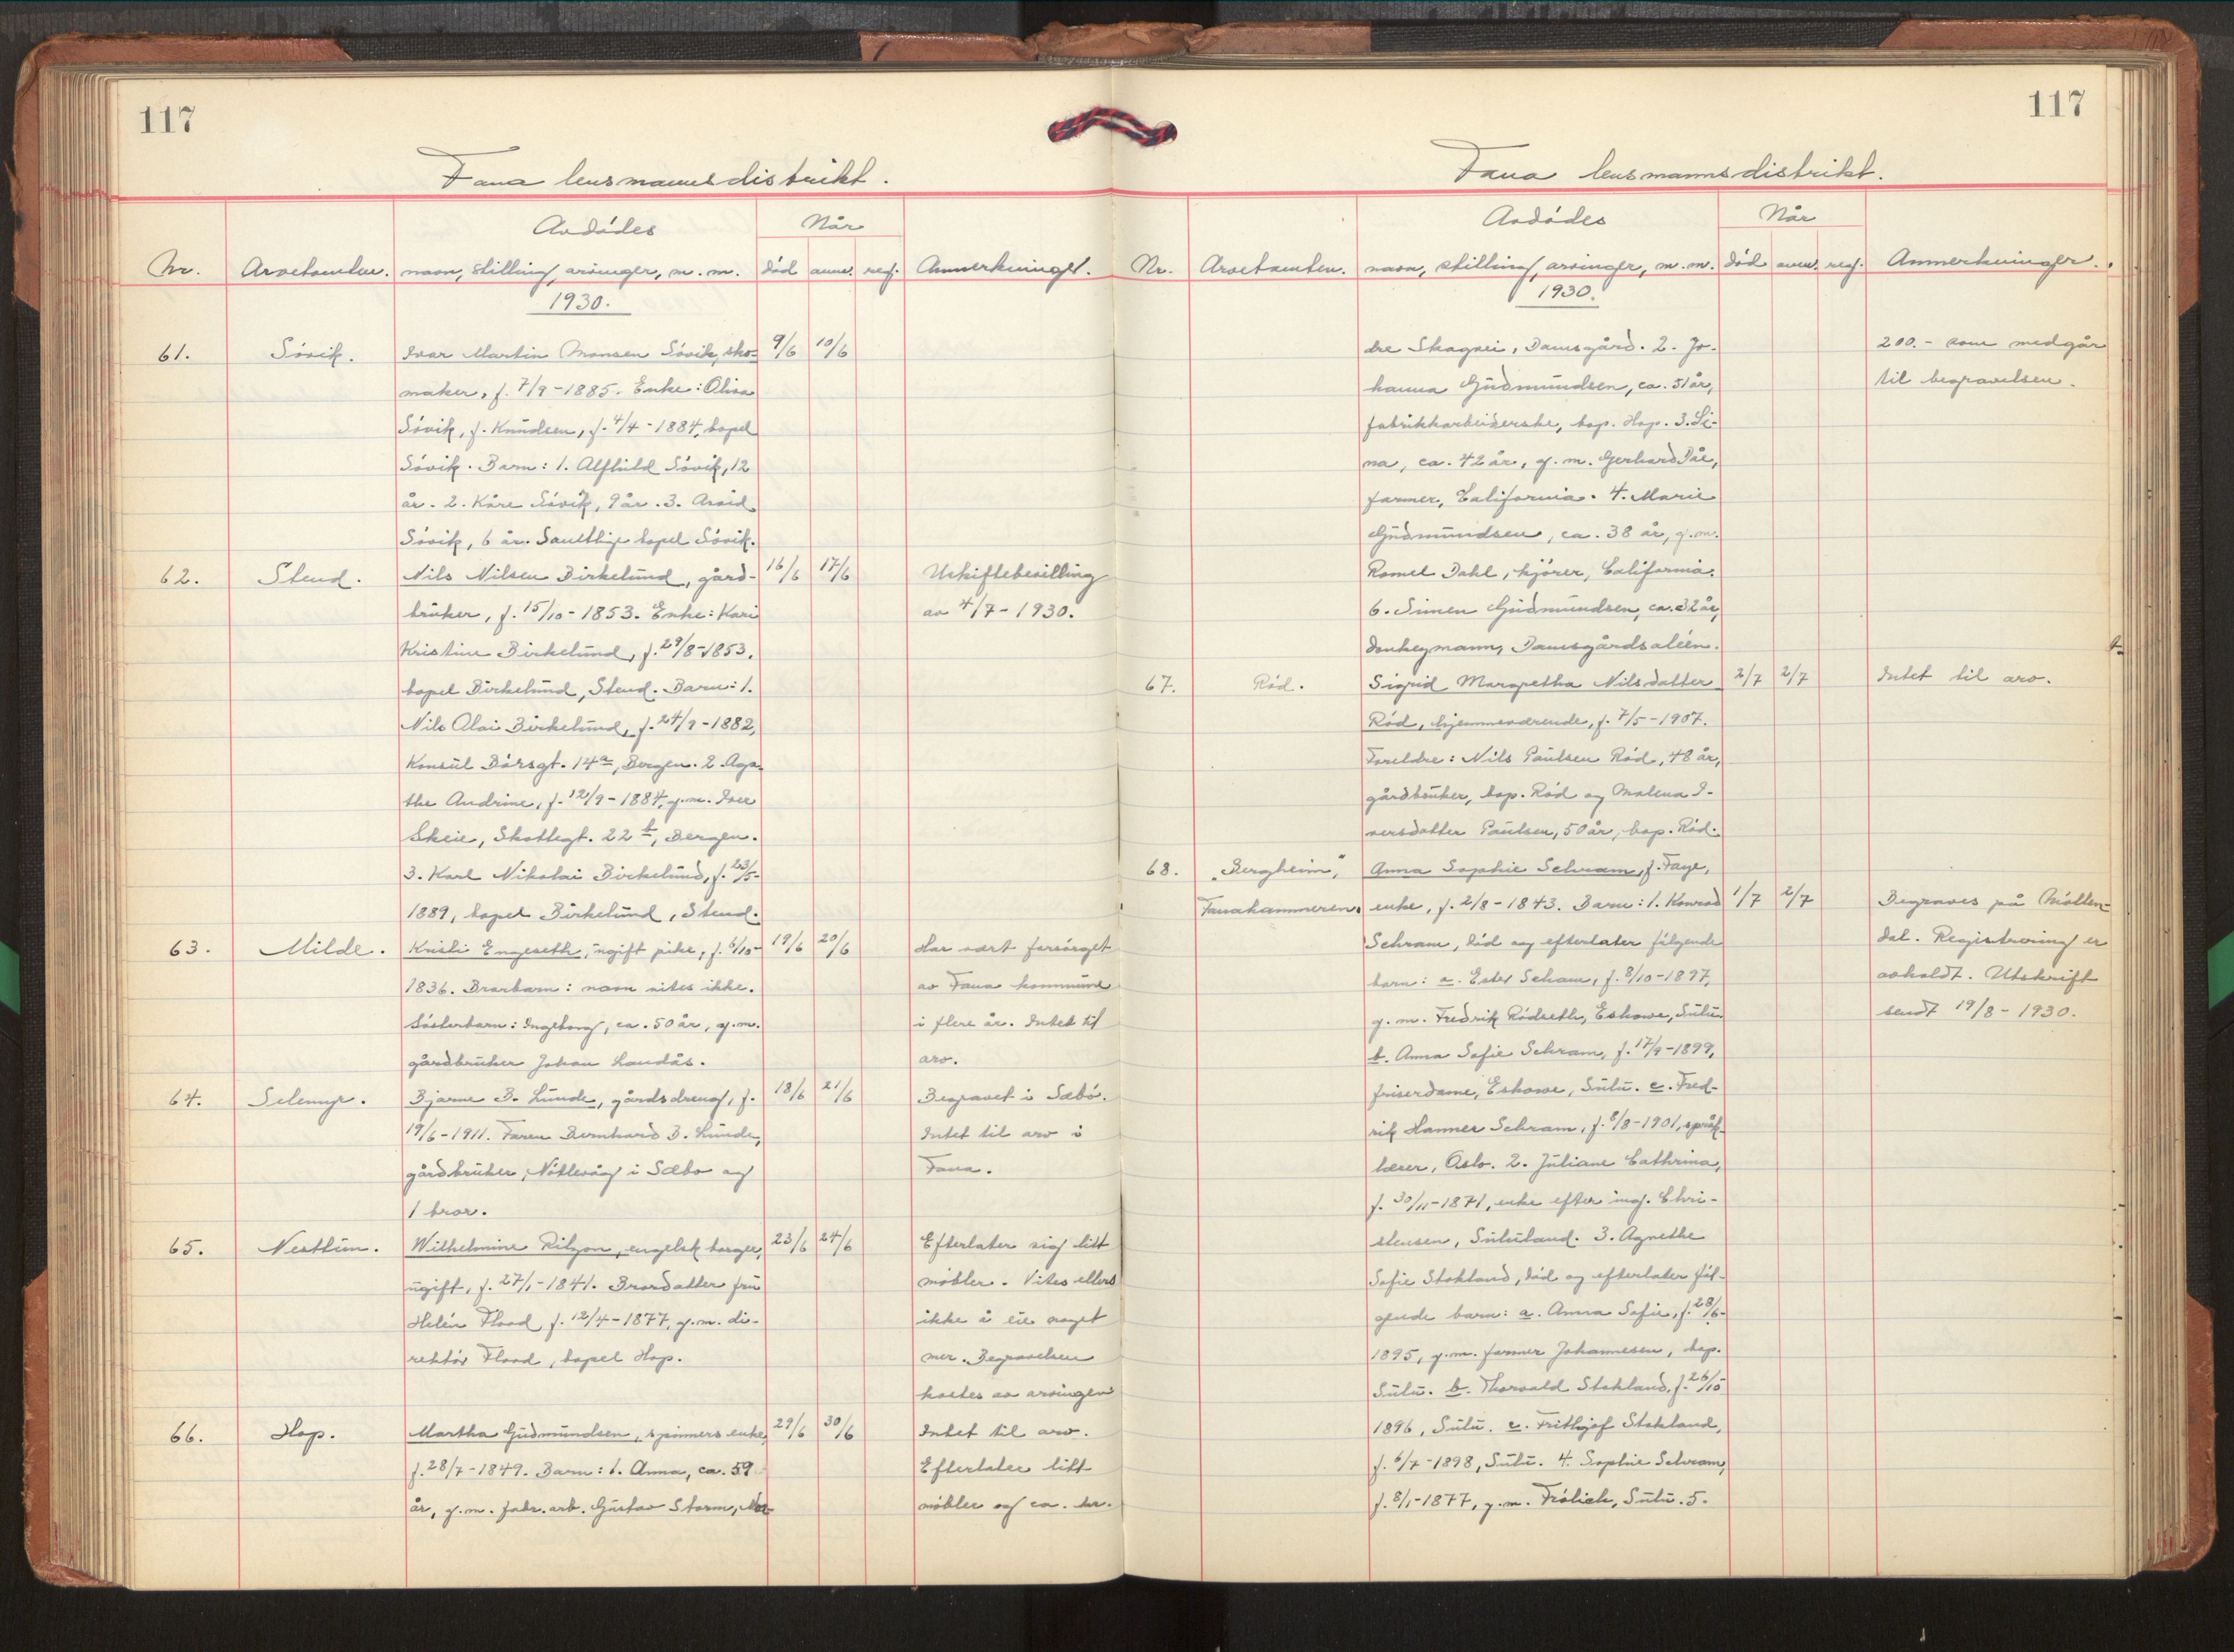 117
Fana lensmannsdistrikt.
Avdødes
Når
Nr.
Arvetomten.
navn, stilling, arvinger, m. m.
død
anm.
reg.
Anmerkninger.
1930.
61.
Søvik.
Ivar Martin Monsen Søvik, sko-
9/6
10/6
maker, f. 7/9-1885. Enke: Olina
Søvik, f. Knudsen, f. 4/4-1884, bopel
Søvik. Barn: 1. Alfhild Søvik, 12
år. 2. Kåre Søvik, 9 år. 3. Arvid
Søvik, 6 år. Samtlige bopel Søvik.
62.
Stend.
Nils Nilsen Birkelund, gård-
16/6
17/6
Uskiftebevilling
bruker, f. 15/10-1853. Enke: Kari
av 4/7-1930.
Kristine Birkelund, f. 29/8-1853.
bopel Birkelund, Stend. Barn: 1.
Nils Olai Birkelund, f. 24/9-1882,
Konsul Børsgt. 14a, Bergen. 2. Aga-
the Andrine, f. 12/9-1884, g.m. Iver
Skeie, Skottegt. 22b, Bergen.
3. Karl Nikolai Birkelund, f. 23/5-
1889, bopel Birkelund, Stend.
63.
Milde.
Kristi Engeseth, ugift pike, f. 6/10-
19/6
20/6
Har vært forsørget
1836. Brorbarn: navn vites ikke.
av Fana kommune
Søsterbarn: Ingeborg, ca. 50 år, g.m.
i flere år. Intet til
gårdbruker Johan Landås.
arv.
64.
Bjarne B. Lunde, gårdsdreng, f.
18/6
21/6
Begravet i Sæbø.
19/6-1911. Faren Bernhard B. Lunde,
Intet til arv i
gårdbruker, Nøtlevåg i Sæbø og
Fana.
1 bror.
65.
Nesttun.
Wilhelmine Rilyon, engelsk borger,
23/6
24/6
Efterlater sig litt
ugift, f. 27/1-1841. Brordatter fru
møbler. Vites ellers
Helén Flood, f. 12/4-1877, g.m. di-
ikke å eie noget
rektør Flood, bopel Hop.
mer. Begravelsen
kostes av arvingen
66.
Hop.
Martha Gudmundsen, spinners enke,
29/6
30/6
Intet til arv.
f. 28/7-1849. Barn: 1. Anna, ca. 59
Efterlater litt
år, g.m. fabr. arb. Gustav Storm,
møbler og ca. kr.
117
Fana lensmannsdistrikt.
Avdødes
Når
Nr.
Arvetomten.
navn, stilling, arvinger, m. m.
død
anm.
reg.
Anmerkninger.
1930.
dre Skogvei, Damsgård. 2. Jo-
200.- som medgår
hanna Gudmundsen, ca. 51 år,
til begravelsen.
fabrikkarbeiderske, bop. Hop. 3. Li-
na, ca. 42 år, g. m. Gerhard Våe,
farmer, California. 4. Marie
Gudmundsen, ca. 38 år, g.m.
Romel Dahl, kjører, California.
6. Simen Gudmundsen, ca. 32 år,
donkeymann, Damsgårdsaléen.
67.
Rød.
Sigrid Margretha Nilsdatter
2/7
2/7
Intet til arv.
Rød, hjemmeværende, f. 7/5-1907.
Foreldre: Nils Paulsen Rød, 48 år,
gårdbruker, bop. Rød og Malena I-
versdatter Paulsen, 50 år, bop. Rød.
68.
"Bergheim",
Anna Sophie Schram, f. Faye,
Fanahammeren.
enke, f. 2/8-1843. Barn: 1. Konrad
1/7
2/7
Begraves på Møllen-
Schram, død og efterlater følgende
dal. Registrering er
barn: a. Ester Scham, f. 8/10-1897,
avholdt. Utskrift
g. m. Fredrik Rødseth, Eshowe, Sulu
sendt 19/8-1930.
b. Anna Sofie Schram, f. 17/9-1899,
friserdame, Eshowe, Sulu. c. Fred-
rik Hanner Schram, f. 8/8-1901, språk-
lærer, Oslo. 2. Juliane Cathrina,
f. 30/11-1871, enke efter ing. Chri-
stensen, Sululand. 3. Agnethe
Sofie Stokland, død og efterlater føl-
gende barn: a. Anna Sofie, f. 28/6-
1895, g.m. farmer Johannesen, bop.
Sulu. b. Thorvald Stokland, f. 26/10
1896, Sulu. c. Frithjof Stokland,
f. 6/7-1898, Sulu. 4. Sophie Schram,
f. 8/1-1877, g.m. Frølich, Sulu. 5.